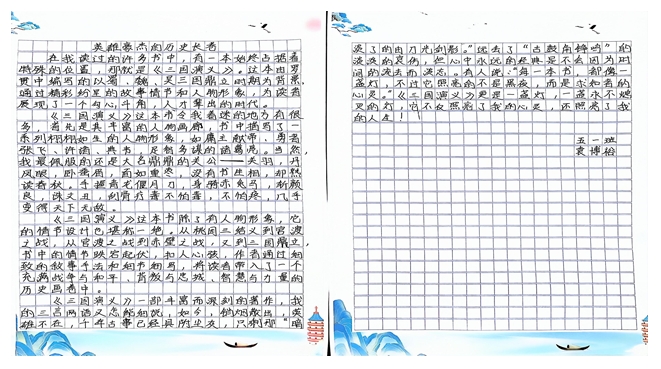 英雄豪杰的历史长卷
在我读过的许多书中，有一本始终占据着
特殊的位置，那就是《三国演义》，这本由罗
贯中编写的以蜀、魏、吴三国鼎立时期为背景，
通过精彩纷呈的故事情节和人物形象，为读者
展现了一个勾心斗角，人才辈出的时代。
《三国演义》这本书令我着迷的地方有很
多，首先是其丰富的人物画廊，书中描写了一
系列栩栩如生的人物形象，如雄主献帝、勇者
张飞、许诸、典韦，足智多谋的诸葛亮。当然，
我最佩服的还是大名鼎鼎的关公——关羽，丹
凤眼，卧蚕眉，面如重枣，没有书生相，却熟
读春秋，手提青龙偃月刀，身骑赤兔马，斩颜
良，诛文丑，刮骨疗毒不怕毒，不怕疼，几乎
变得天下无敌。
《三国演义》这本书除了有人物形象，它
的情节设计也堪称一绝。从桃园三结义到官渡
之战，从官渡之战到赤壁之战，又到三国鼎立，
书中的情节跌宕起伏，扣人心弦，作者通过细
致的叙事手法和细节描写，将读者带入了一个
充满战争与和平、背叛与忠诚、智慧与力量的
历史画卷中。
《三国演义》一部丰富而深刻的著作，我
的三言两语又怎能细说，如今，硝烟散出，英
雄不在，个年古事已经具防尘灰，只剩那“暗
淡了的由刀光剑影。”远去了“古鼓角铮鸣”的
淡淡的哀伤，但心中永远的经典是不会因为时
间的流去而淡忘。有人说：“每一本书，都像一
盏灯，不过它照亮的不是黑夜，而是求知者的
心灵。”《三国演义》更是一盏灯，一盏永不熄
灭的灯，它不仅照亮了我的心灵，还照亮了我
的人生！
五一班
袁博裕